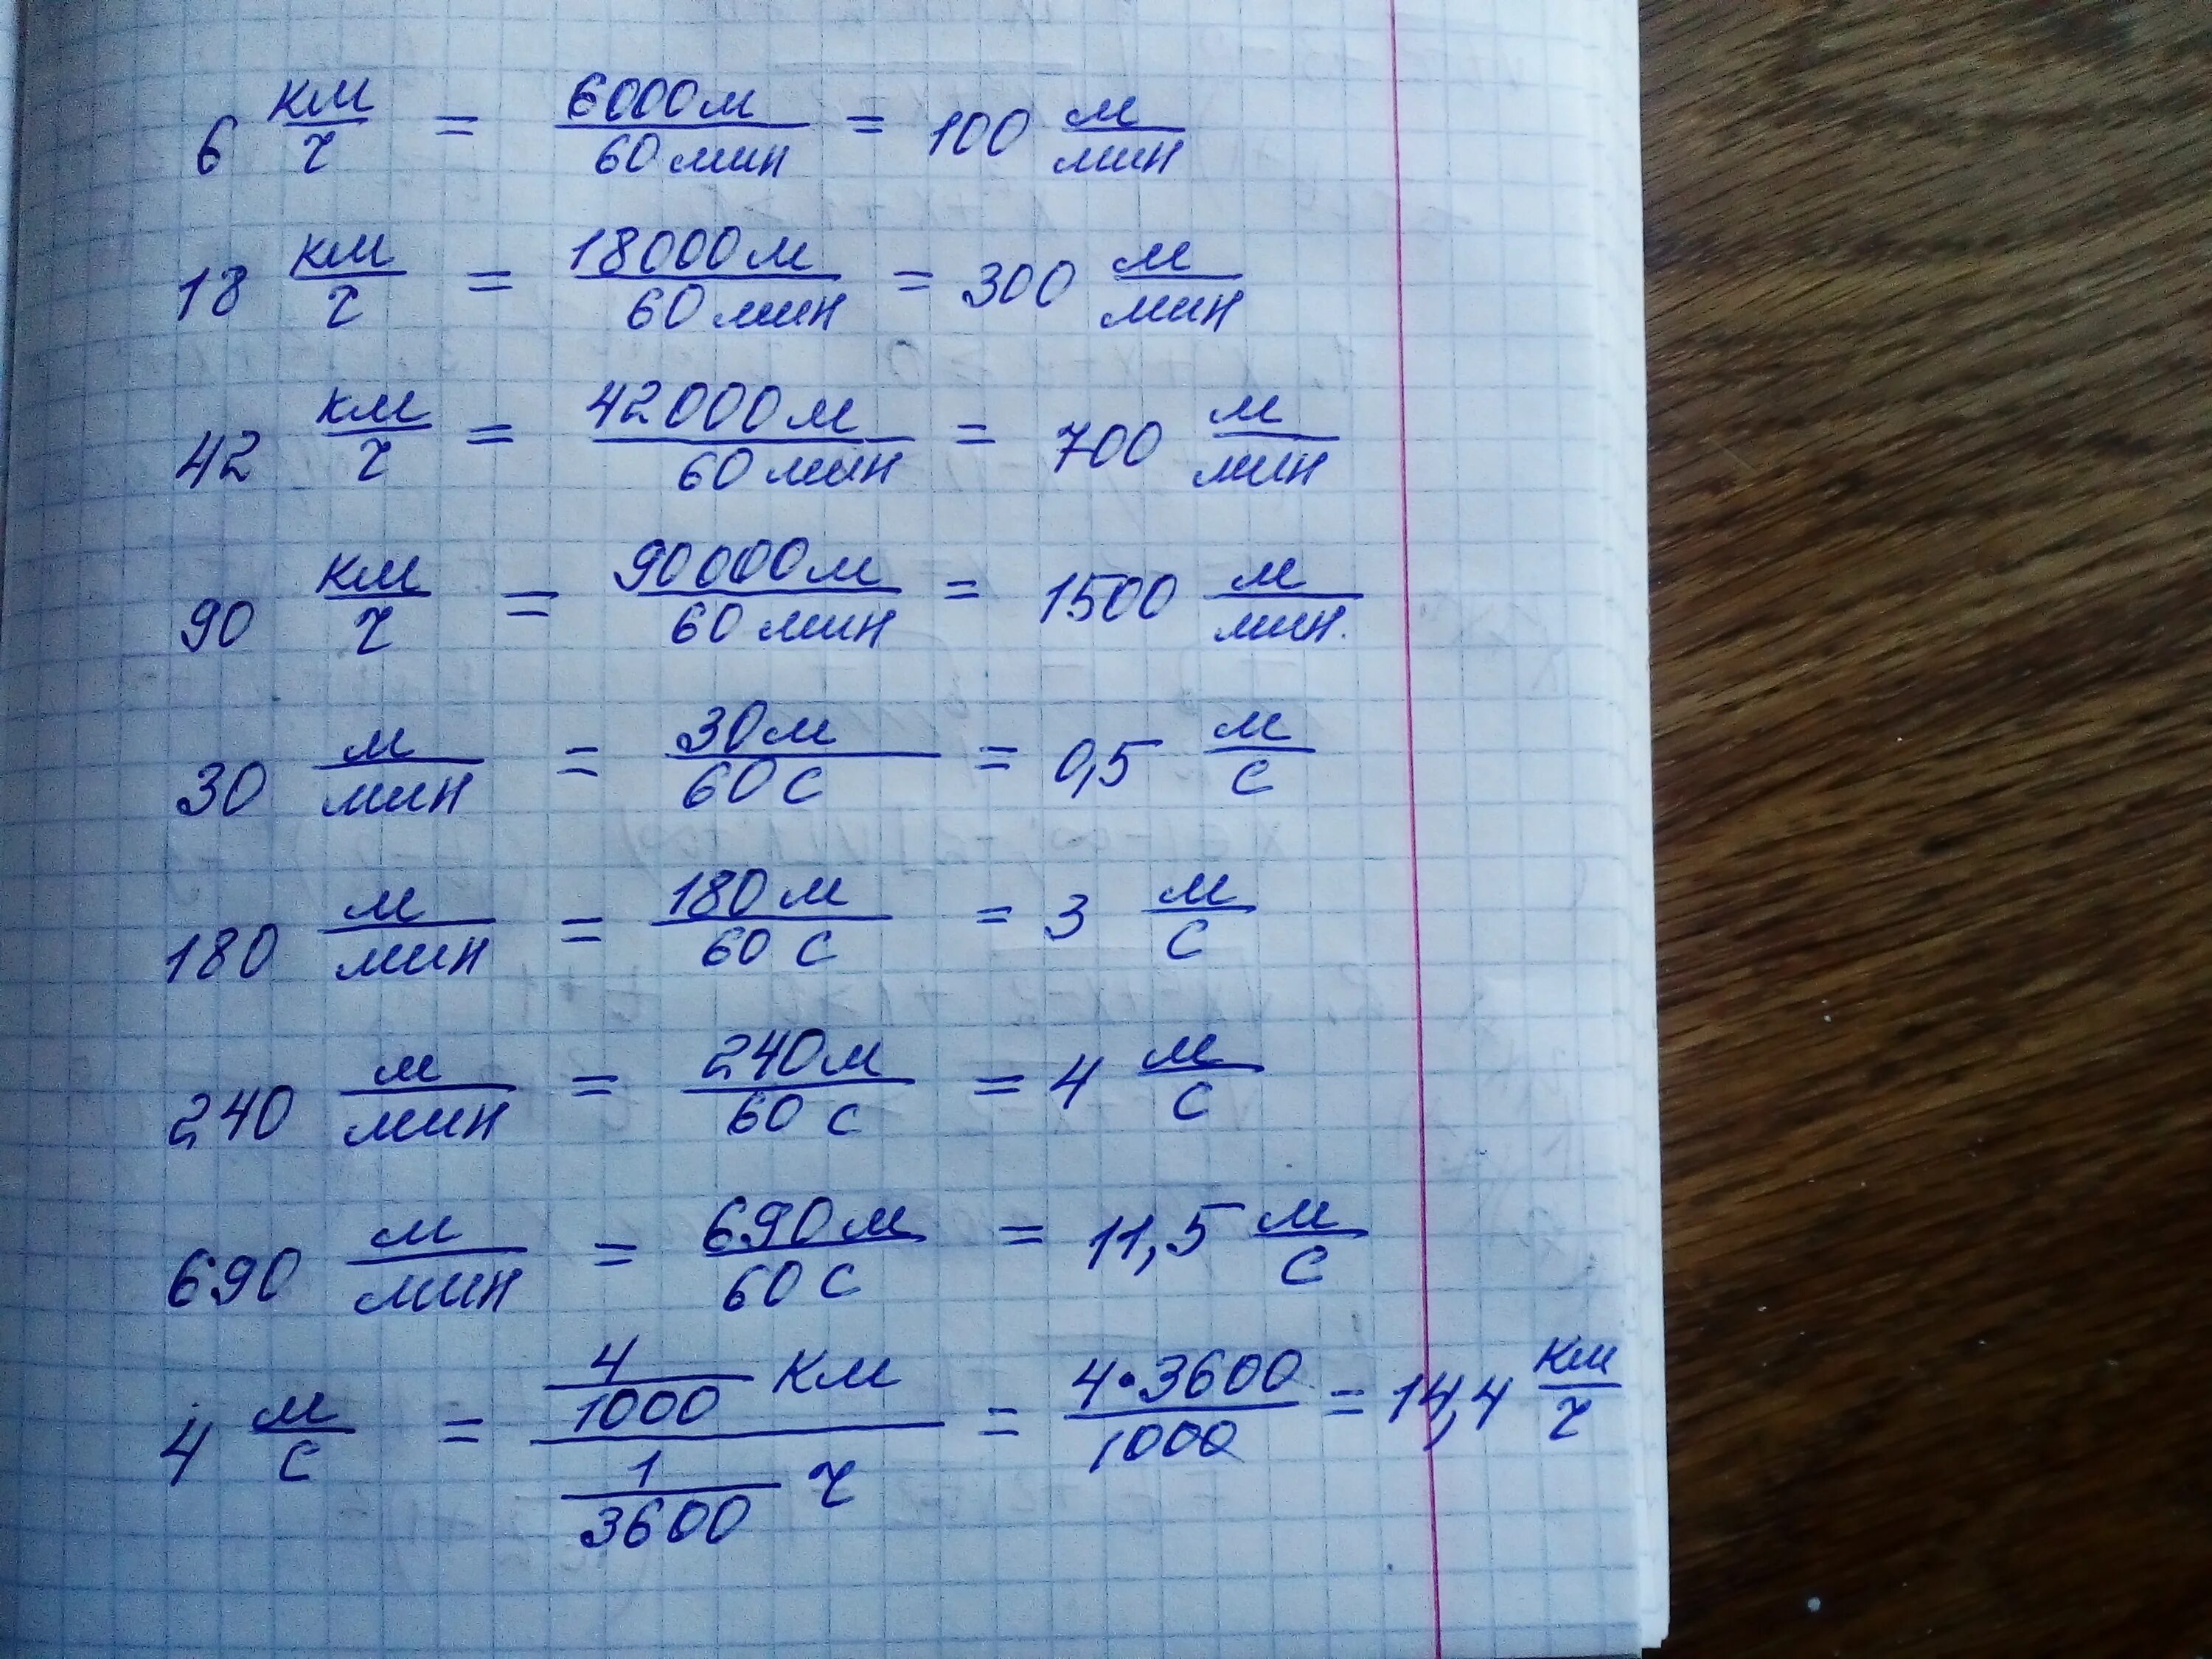 6 км/ч = 6000м/60 мин = 100 м/мин
18 км/ч = 18000м/60 мин = 300 м/мин
42 км/ч = 42000м/60 мин = 700 м/мин
90 км/ч = 90000м/60 мин = 1500 м/мин.
30 м/мин = 30м/60 с = 0,5 м/с
180 м/мин = 180 м/60 с = 3 м/с
240 м/мин = 240м/60 с = 4 м/с
690 м/мин = 690м/60 с = 11,5 м/с
4 м/с = (4/1000 км)/(1/3600 ч) = 4•3600/1000 = 14,4 км/ч